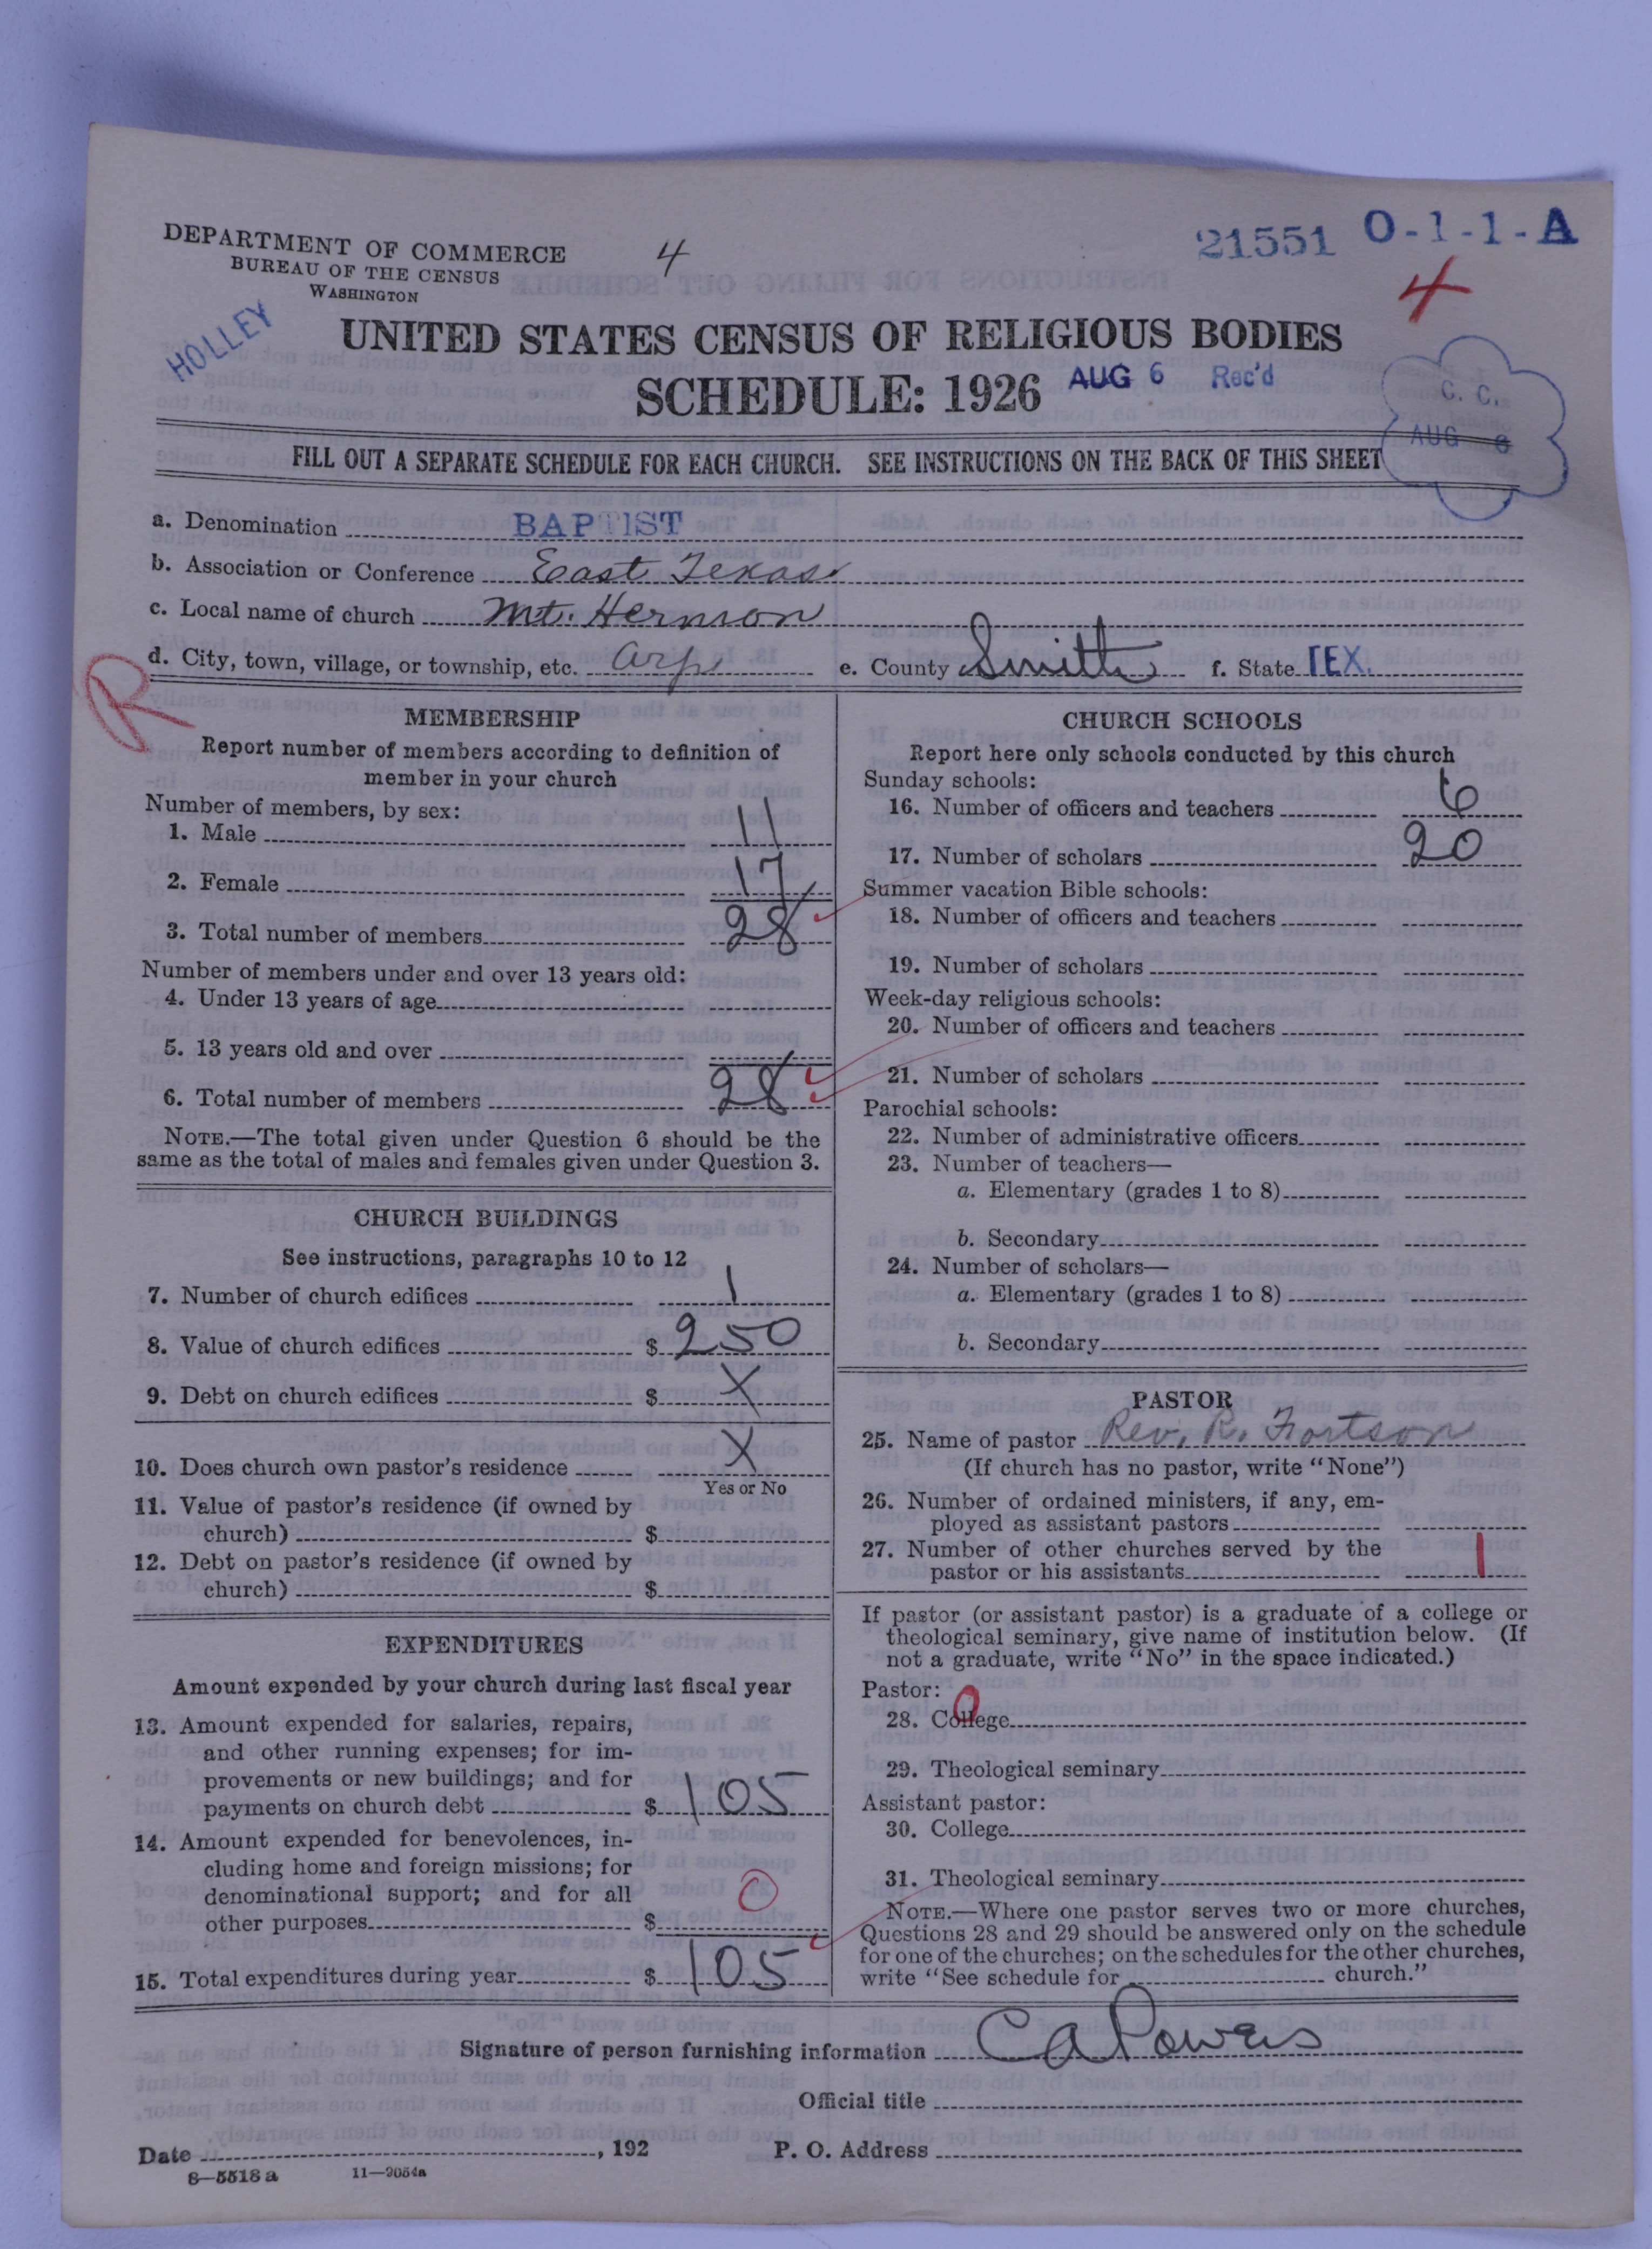 DEPARTMENT OF COMMERCE
BUREAU OF THE CENSUS
WASHINGTON
4
21551 O-1-1-A
4
HOLLEY
UNITED STATES CENSUS OF RELIGIOUS BODIES
SCHEDULE: 1926
AUG 6 Rec'd
C. C.
AUG 6
FILL OUT A SEPARATE SCHEDULE FOR EACH CHURCH. SEE INSTRUCTIONS ON THE BACK OF THIS SHEET
a. Denomination BAPTIST
b. Association or Conference East Texas
c. Local name of church Mt. Hermon
d. City, town, village, or township, etc. Arp e. County Smith f. State TEX.
R
MEMBERSHIP
Report number of members according to definition of
member in your church
Number of members, by sex:
1. Male 11
2. Female 17
3. Total number of members 28
Number of members under and over 13 years old:
4. Under 13 years of age
5. 13 years old and over
6. Total number of members 28
NOTE.—The total given under Question 6 should be the
same as the total of males and females given under Question 3.
CHURCH BUILDINGS
See instructions, paragraphs 10 to 12
7. Number of church edifices 1
8. Value of church edifices $ 250
9. Debt on church edifices $ X
10. Does church own pastor's residence X
Yes or No
11. Value of pastor's residence (if owned by
church) $
12. Debt on pastor's residence (if owned by
church) $
EXPENDITURES
Amount expended by your church during last fiscal year
13. Amount expended for salaries, repairs,
and other running expenses; for im-
provements or new buildings; and for
payments on church debt $ 105
14. Amount expended for benevolences, in-
cluding home and foreign missions; for
denominational support; and for all
other purposes $ 0
15. Total expenditures during year $ 105
CHURCH SCHOOLS
Report here only schools conducted by this church
Sunday schools:
16. Number of officers and teachers 6
17. Number of scholars 20
Summer vacation Bible schools:
18. Number of officers and teachers
19. Number of scholars
Week-day religious schools:
20. Number of officers and teachers
21. Number of scholars
Parochial schools:
22. Number of administrative officers
23. Number of teachers—
a. Elementary (grades 1 to 8)
b. Secondary
24. Number of scholars—
a. Elementary (grades 1 to 8)
b. Secondary
PASTOR
25. Name of pastor Rev. R. Fortson
(If church has no pastor, write "None")
26. Number of ordained ministers, if any, em-
ployed as assistant pastors
27. Number of other churches served by the
pastor or his assistants 1
If pastor (or assistant pastor) is a graduate of a college or
theological seminary, give name of institution below. (If
not a graduate, write "No" in the space indicated.)
Pastor: 0
28. College
29. Theological seminary
Assistant pastor:
30. College
31. Theological seminary
NOTE.—Where one pastor serves two or more churches,
Questions 28 and 29 should be answered only on the schedule
for one of the churches; on the schedules for the other churches,
write "See schedule for church."
Signature of person furnishing information C A Powers
Official title
Date , 192 P. O. Address
8—5518 a 11—9054a